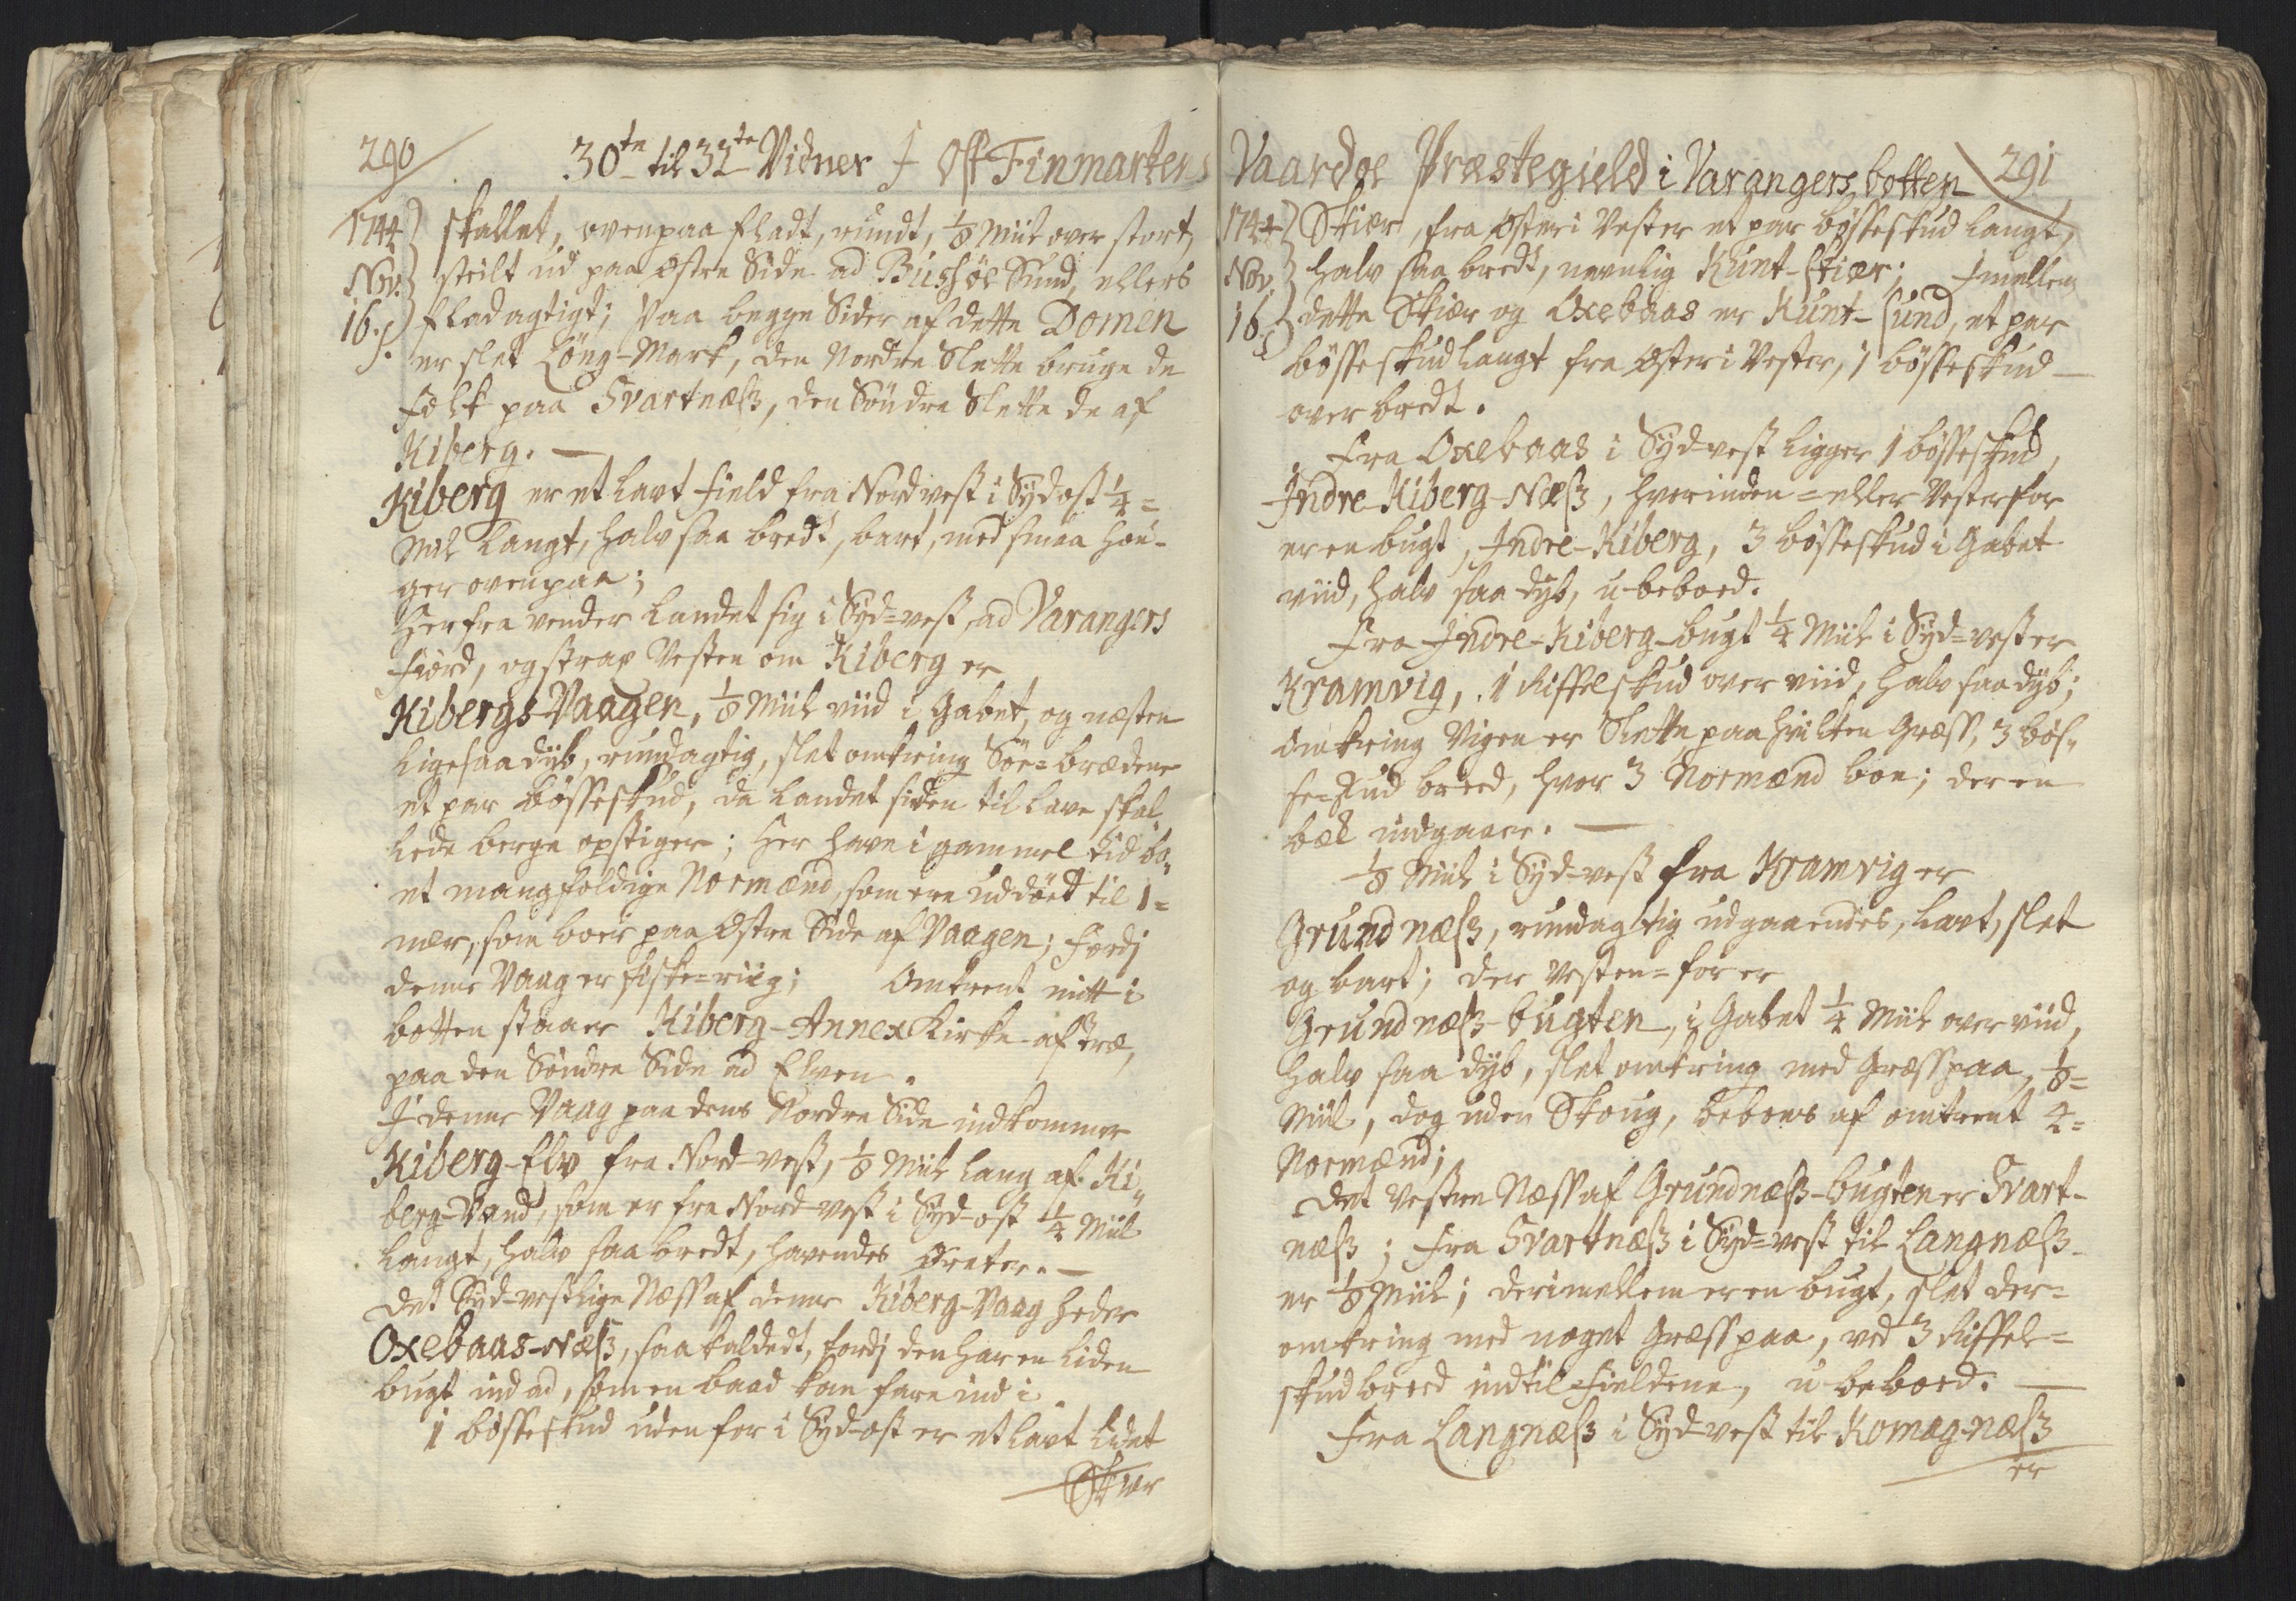 290
30te til 32te Vidner J Ost Finmarkens
1744
Nov.
16. J.
skallet, ovenpaa fladt, rundt, 1/8 Miil over stort,
steilt ud paa Østre Side ad Bussöe Sund, ellers
fladagtigt; Paa begge Sider af dette Domen
er slet Löng-Mark, den Nordre Slette bruge de
Folk paa Svartnæss, den Söndre Slette de af
Kiberg. —
Kiberg er et lavt Field fra Nordvest i Sydost 1/4 =
Miil langt, halv saa bredt, bart, med smaa Hou-
ger ovenpaa;
Herfra vender Landet sig i Syd=vest, ad Varangers
Fiord, og strax Vesten om Kiberg er
Kibergs-Vaagen, 1/8 Miil viid i Gabet, og næsten
ligesaa dyb, rundagtig, slet omkring Söe-brædene
et par bösseskud, da Landet siden til lave skal-
lede berge opstiger; Her have i gammel tid bo-
et mangfoldige Normænd, som ere uddöed til 1=
mer, som boer paa Østre Side af Vaagen; Fordj
denne Vaag er fiske=riig; Omtrent mitt i
botten staaer Kiberg-Annex Kirke af træ,
paa den Söndre Side ad Elven.
J denne Vaag paa dens Nordre Side indkommer
Kiberg-Elv fra Nord-vest, 1/8 Miil lang af Ki-
berg-Vand, som er fra Nord-vest i Syd-ost 1/4 Miil
langt, halv saa bredt, havendes Ørreter. —
Det Syd-vestlige Næss af denne Kiberg-Vaag heder
Oxebaas-Næss, saa kaldedt, fordj den har en liden
bugt ind ad, som en baad kan fare ind i
1 bösseskud uden for i Syd-ost er et lavt lidet
Skiær
Vaardöe Præstegield i Varangers botten
291
1744
Nov.
16. J.
Skiær, fra Øster i Vester et par bösseskud langt,
halv saa bredt, navnlig Kunt-Skiær; Jmellem
dette Skiær og Oxebaas er Kunt-Sund, et par
bösseskud langt fra Øster i Vester, 1 bösseskud —
over bredt.
Fra Oxebaas i Syd-vest ligger 1 bösseskud,
Jndre-Kiberg-Næss, hvorinden=eller Vesterfor
er en bugt, Jndre-Kiberg, 3 bösseskud i Gabet
viid, halv saa dyb, u-beboed.
Fra Jndre-Kiberg-bugt 1/4 Miil i Syd=vest er
Kramvig, 1 Riffelskud over viid, halv saa dyb;
omkring Vigen er Slette paa hvilken Græss, 3 bös-
se-skud breed, hvor 3 Normænd boe; der en
bæk indgaaer. —
1/8 Miil i Syd-vest fra Kramvig er
Grundnæss, rundagtig udgaaendes, lavt, slet
og bart; der Vesten=for er
Grundnæss-bugten, i Gabet 1/4 Miil over viid,
halv saa dyb, slet omkring med Græss paa, 1/8=
Miil, dog uden Skoug, beboes af omtrent 4=
Normænd;
Det Vestre Næss af Grundnæss-bugten er Svart-
næss; Fra Svartnæss i Syd=vest til Langnæss
er 1/8 Miil; derimellem er en bugt, slet der=
omkring med noget Græss paa, ved 3 Riffel=
skud breed indtil Fieldene, u-beboed. —
Fra Langnæss i Syd-vest til Komagnæss
er